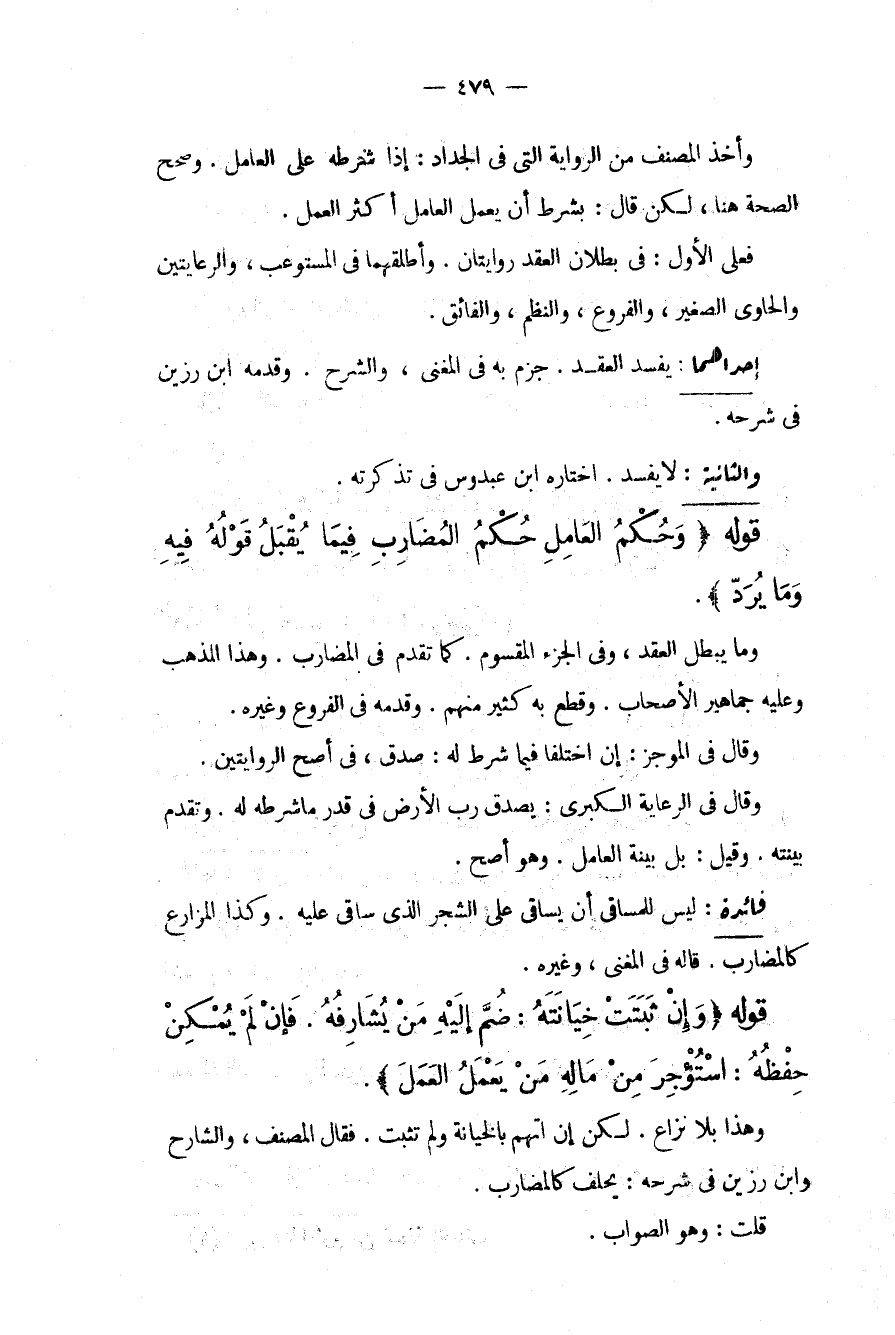 — ٤٧٩ —
وأخذ المصنف من الرواية التى فى الجداد : إذا شرطه على العامل . وصحح
الصحة هنا ، لكن قال : بشرط أن يعمل العامل أكثر العمل .
فعلى الأول : فى بطلان العقد روايتان . وأطلقهما فى المستوعب ، والرعايتين
والحاوى الصغير ، والفروع ، والنظم ، والفائق .
إحداهما : يفسد العقد . جزم به فى المغنى ، والشرح . وقدمه ابن رزين
فى شرحه .
والثانية : لا يفسد . اختاره ابن عبدوس فى تذكرته .
قوله ﴿ وَحُكْمُ العَامِلِ حُكْمُ المُضَارِبِ فِيمَا يُقْبَلُ قَوْلُهُ فِيهِ
وَمَا يُرَدّ ﴾ .
وما يبطل العقد ، وفى الجزء المقسوم . كما تقدم فى المضارب . وهذا المذهب
وعليه جماهير الأصحاب . وقطع به كثير منهم . وقدمه فى الفروع وغيره .
وقال فى الموجز : إن اختلفا فيما شرط له : صدق ، فى أصح الروايتين .
وقال فى الرعاية الكبرى : يصدق رب الأرض فى قدر ماشرطه له . وتقدم
بينته . وقيل : بل بينة العامل . وهو أصح .
فائدة : ليس للمساقى أن يساقى على الشجر الذى ساقى عليه . وكذا المزارع
كالمضارب . قاله فى المغنى ، وغيره .
قوله ﴿ وَإِنْ ثَبَتَتْ خِيَانَتَهُ : ضُمَّ إِلَيْهِ مَنْ يُشَارِفُهُ . فَإِنْ لَمْ يُمْكِنْ
حِفْظُهُ : اسْتُؤْجِرَ مِنْ مَالِهِ مَنْ يَعْمَلُ العَمَلَ ﴾ .
وهذا بلا نزاع . لكن إن اتهم بالخيانة ولم تثبت . فقال المصنف ، والشارح
وابن رزين فى شرحه : يحلف كالمضارب .
قلت : وهو الصواب .